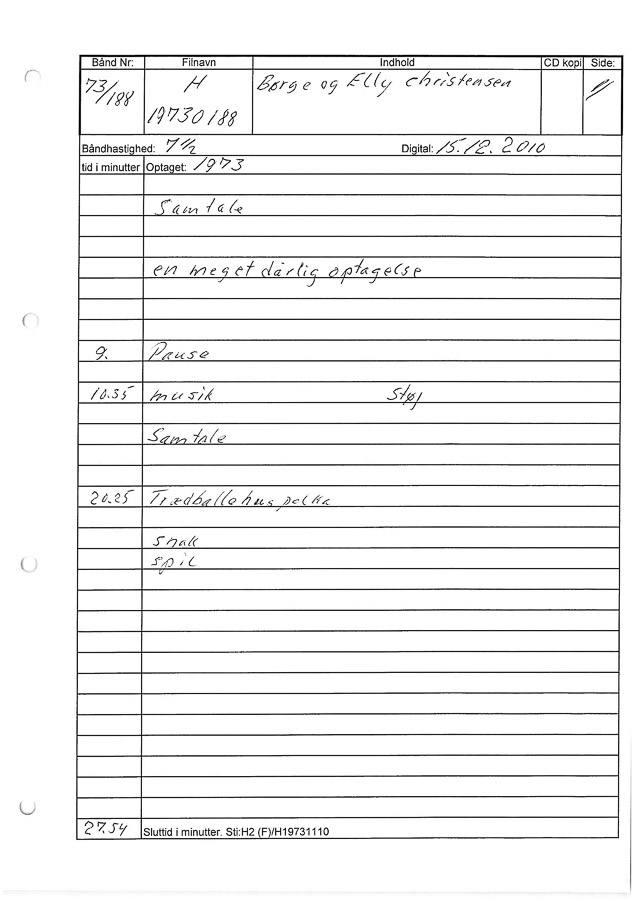 Bånd Nr: Filnavn Indhold CD kopi Side:
73/188 H Børge og Elly Christensen
19730188
Båndhastighed: 7 1/2 Digital: 15.12.2010
tid i minutter Optaget: 1973
Samtale
en meget dårlig optagelse
9. Pause
10.35 musik Støj
Samtale
20.25 Trædballehus polka
snak
spil
27.54 Sluttid i minutter. Sti:H2 (F)/H19731110